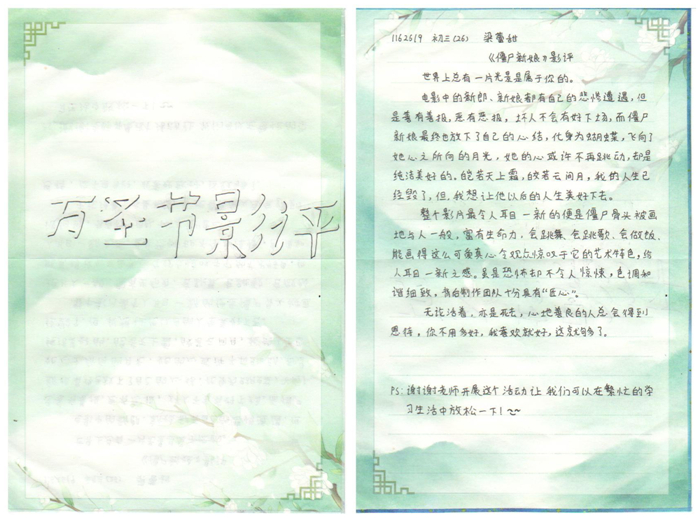 万圣节影评
1162619 初三(26) 梁蕾甜
《僵尸新娘》影评
世界上总有一片光景是属于你的。
电影中的新郎、新娘都有自己的悲惨遭遇，但
是善有善报，恶有恶报，坏人不会有好下场，而僵尸
新娘最终也放下了自己的心结，化身为蝴蝶，飞向了
她心之所向的月光，她的心或许不再跳动，却是
纯洁美好的。皑若天上霜，皎若云间月，我的人生已
经毁了，但，我想让他以后的人生美好下去。
整个影片最令人耳目一新的便是僵尸骨头被画
地与人一般，富有生命力、会跳舞、会跳歌、会做饭，
能画得这么可爱真心令观众惊叹于它的艺术特色，给
人耳目一新之感。虽是恐怖却不令人惊悚，色调和
谐细致，背后制作团队十分具有“匠心”。
无论活着，亦是死去，心地善良的人总会得到
恩待，你不用多好，我喜欢就好，这就够了。
PS：谢谢老师开展这个活动让我们可以在繁忙的学
习生活中放松一下！~~